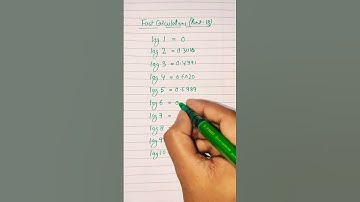 Fast Calculations (Part-13)
log 1 = 0
log 2 = 0.3010
log 3 = 0.4771
log 4 = 0.6020
log 5 = 0.6989
log 6 = 0
log 7 =
log 8
log 9
log 10